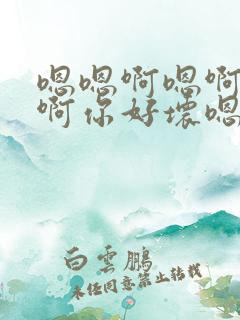 嗯嗯啊嗯啊
啊你好坏嗯
白雲鹏
未经同意禁止转载